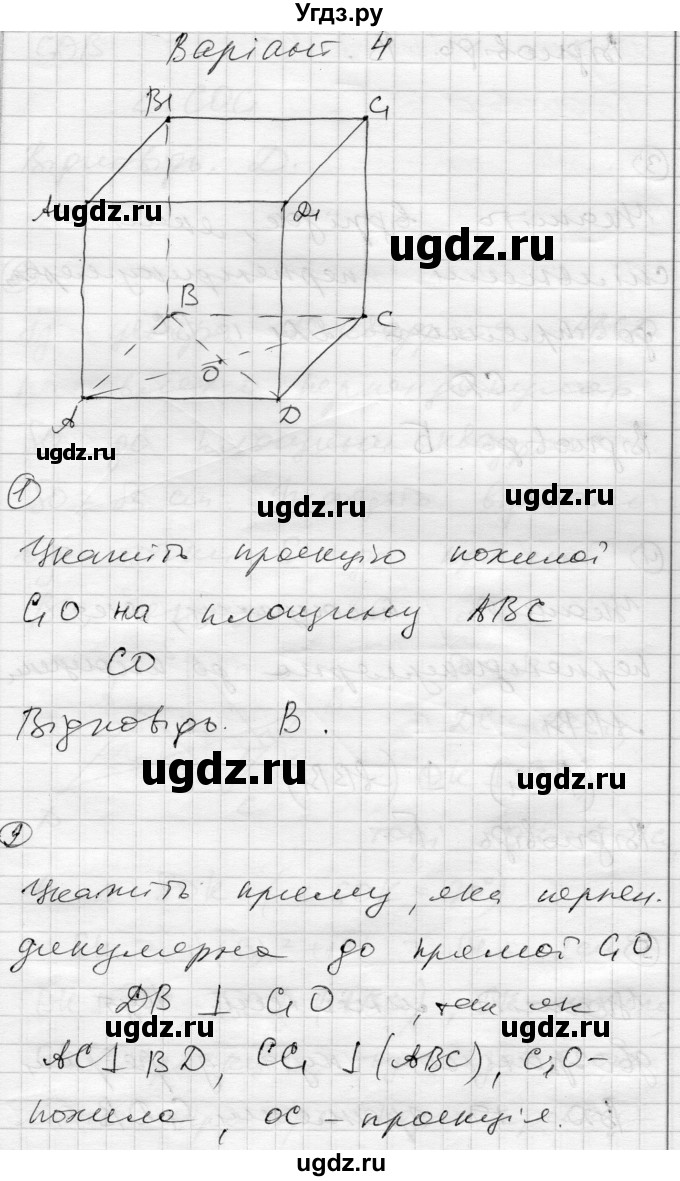 Угдз.ру
Варіант 4
B1 C1
A1 D1
ugdz.ru
ugdz.ru
B C
O
A D
ugdz.ru
1
ugdz.ru ugdz.ru
Укажіть проекцію похилої
C1O на площину ABC
CO
Відповідь. В.
ugdz.ru ugdz.ru
2
Укажіть пряму, яка перпен-
дикулярна до прямої C1O
DB ⊥ C1O, так як
ugdz.ru ugdz.ru
AC ⊥ BD, CC1 ⊥ (ABC), C1O –
похила, OC – проекція.
ugdz.ru